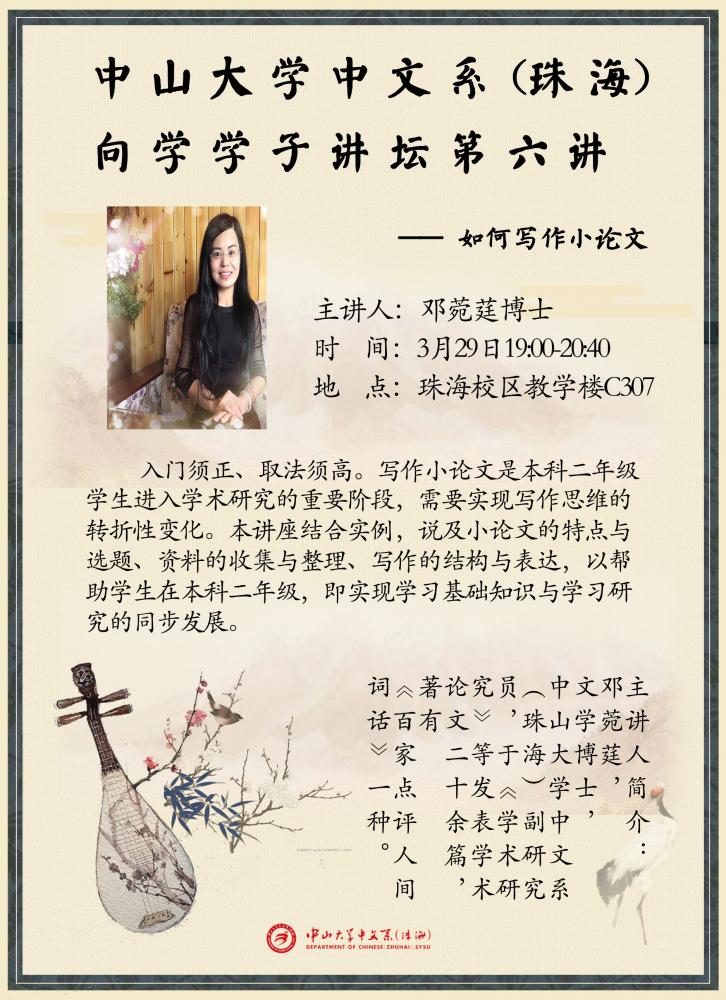 中山大学中文系(珠海)
向学学子讲坛第六讲
—— 如何写作小论文
主讲人：邓菀莛博士
时　间：3月29日19:00-20:40
地　点：珠海校区教学楼C307
入门须正、取法须高。写作小论文是本科二年级
学生进入学术研究的重要阶段，需要实现写作思维的
转折性变化。本讲座结合实例，说及小论文的特点与
选题、资料的收集与整理、写作的结构与表达，以帮
助学生在本科二年级，即实现学习基础知识与学习研
究的同步发展。
主讲人简介：
邓菀莛，
文学博士，
中山大学中文系
（珠海）副研究
员，于《学术研
究》等发表学术
论文二十余篇，
著有
《百家点评人间
词话》一种。
中山大学中文系(珠海)
DEPARTMENT OF CHINESE(ZHUHAI),SYSU